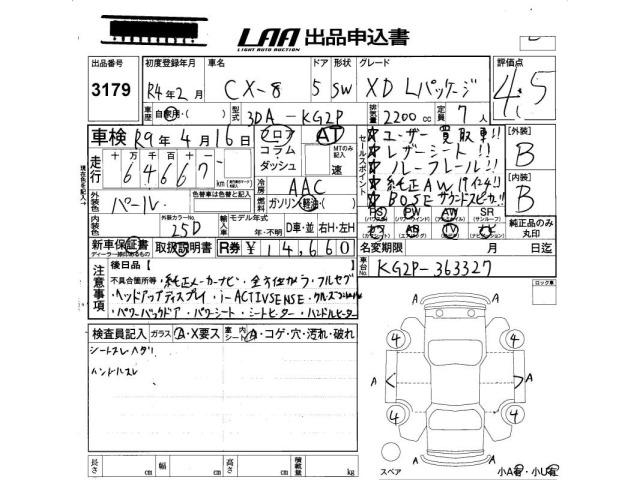 LAA 出品申込書
LIGHT AUTO AUCTION
出品番号 初度登録年月 車名 ドア 形状 グレード 評価点
3179 R4年2月 CX-8 5 SW XD Lパッケージ 4.5
車歴 自家用・( ) 型式 3DA-KG2P 排気量 2200cc 定員 7人
車検 R9年4月16日 フロア コラム ダッシュ AT MTのみ記入 速
セールスポイント
★ユーザー買取車!!
★レザーシート!!
★ルーフレール!!
★純正AW 19インチ!!
★BOSEサウンドスピーカー!!
【外装】 B
【内装】 B
現在色を記入
走行 十万 千 百 十
6 4 6 6 7
冷房 AAC
外装色 パール 色替車は色替と記入
燃料 ガソリン・軽油・( )
PS PW AW SR
(パワステ) (パワーウインド) (アルミホイール) (サンルーフ)
カワ AB TV ナビ
純正品のみ丸印
内装色 外装カラーNo. 25D 輸入車 モデル年式 年・不明 D車・並 右H・左H
新車保証書 取扱説明書 R券 ¥14,660
ディーラー印のあるもの
名変期限 月 日迄
車台No. KG2P-363327
注意事項
後日品【 】
不具合箇所等・純正メーカーナビ・全方位カメラ・フルセグ
・ヘッドアップディスプレイ・i-ACTIVSENSE・クルーズコントロール
・パワーバックドア・パワーシート・シートヒーター・ハンドルヒーター
ロック車
検査員記入 ガラス A・X要ス 室内シート A・コゲ・穴・汚れ・破れ
シートスレヘタリ
ハンドルスレ
A A
4 4
A A
4 4
A A
スペア 小A有・小U有
長さ cm 幅 cm 高さ cm 積載量 kg